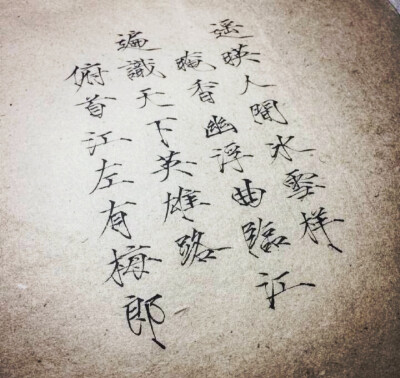 遥映人間冰雪样
暗香幽浮曲臨江
遍識天下英雄路
俯首江左有梅郎